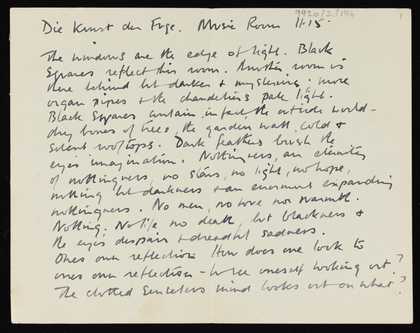 Die Kunst der Fuge. Music Room 11.15.
The windows are the edge of light. Black
Squares reflect this room. Another room is
there behind but darker & mysterious: more
organ pipes & the chandeliers pale light.
Black Squares contain, in fact, the outside world -
dry bones of trees, the garden wall, cold &
silent rooftops. Dark feathers brush the
eyes imagination. Nothingness, an eternity
of nothingness, no stars, no light, no hope,
nothing but darkness & an enormous expanding
nothingness. No men, no love nor warmth.
Nothing. No life, no death, but blackness &
the eyes despair & dreadful sadness.
Ones own reflection. How does one look to
ones own reflection - to see oneself looking out?
The clotted senseless mind looks out on what?